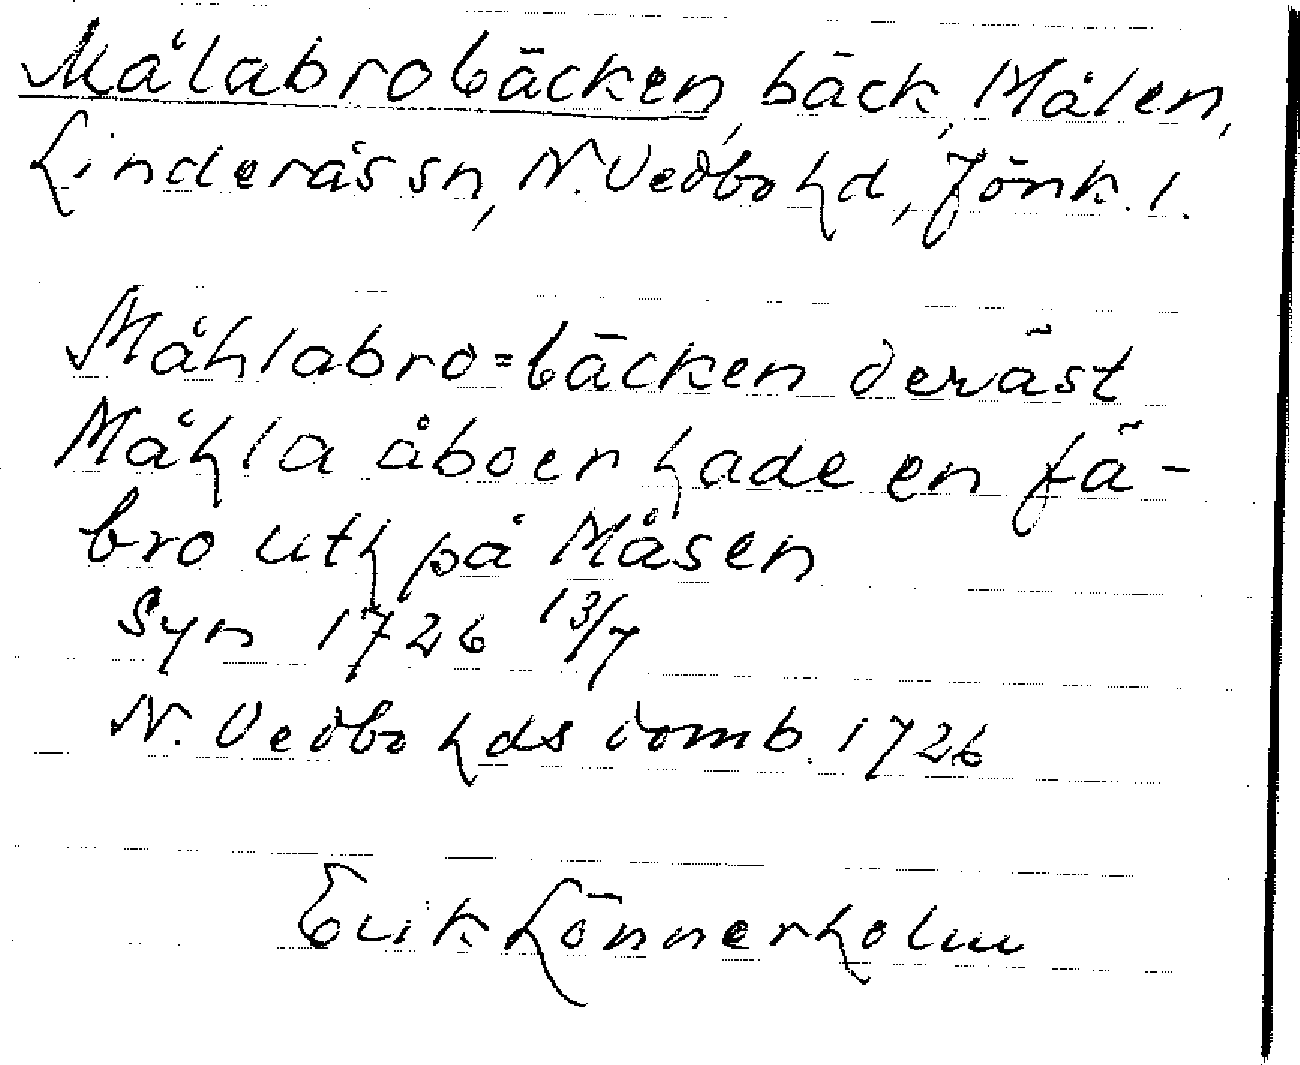 Målabrobäcken, bäck, Målen,
Linderås sn, N. Vedbo hd, Jönk. l.
Måhlabro=bäcken deräst
Måhla åboer hade en fä-
bro uth på Måsen
Syn 1726 13/7
N. Vedbo hds domb. 1726
Erik Lönnerholm